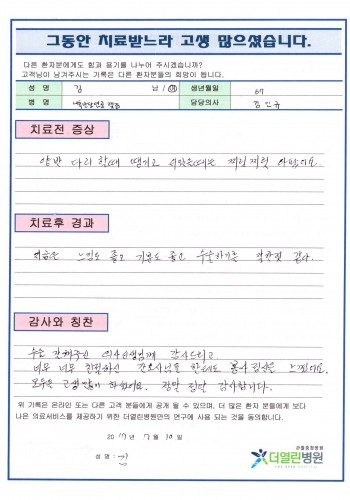 그동안 치료받느라 고생 많으셨습니다.
다른 환자분에게도 힘과 용기를 나누어 주시겠습니까?
고객님이 남겨주시는 기록은 다른 환자분들의 희망이 됩니다.
성 명 김 남 / 여 생년월일 67
병 명 담당의사 김
치료전 증상
다리 찌릿찌릿
치료후 경과
지금은 느낌도 좋고 기분도 좋고 수술하기는 같다.
감사와 칭찬
수술 잘해주신 의사선생님께 감사드리고
너무 너무 친절하신 간호사님들
모두들 고생많이 하셨어요. 정말 정말 감사합니다.
위 기록은 온라인 또는 다른 고객 분들에게 공개 될 수 있으며, 더 많은 환자 분들에게 보다
나은 의료서비스를 제공하기 위한 더열린병원만의 연구에 사용 되는 것을 동의합니다.
2017년 7월 10일
성 명 :
관절중점병원
더열린병원